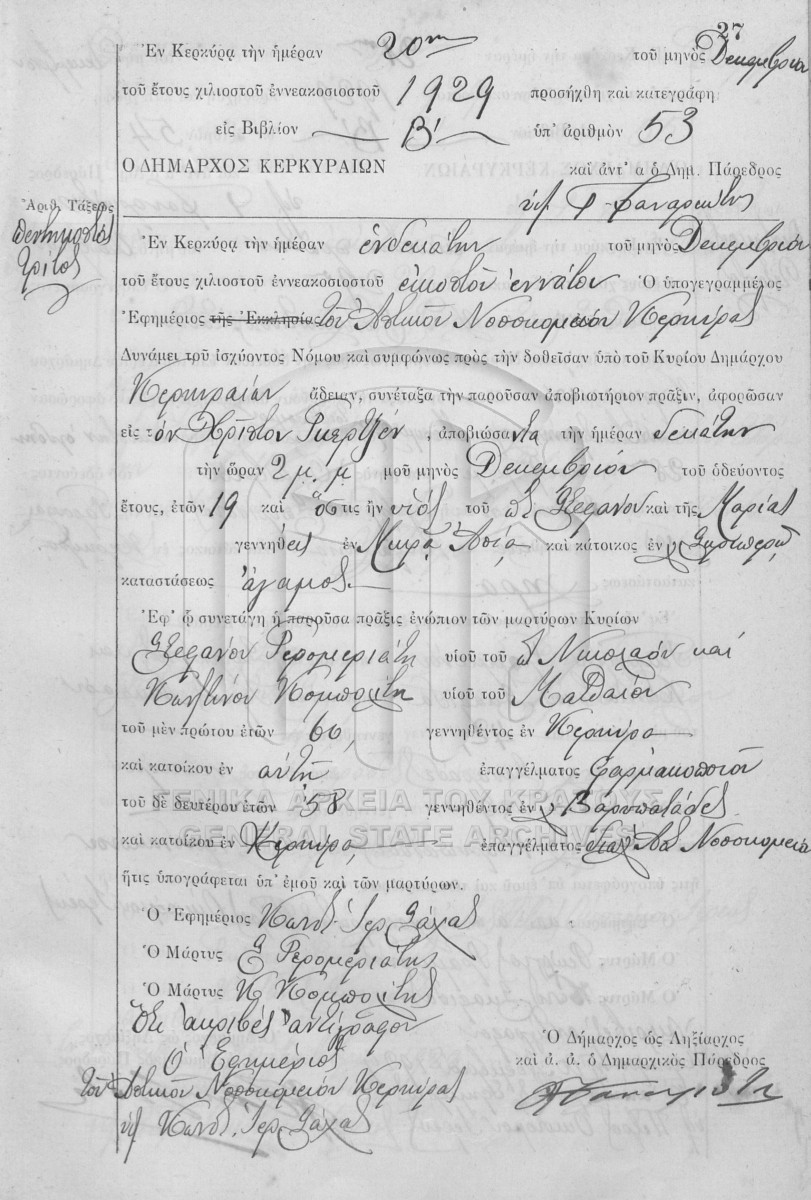 27
Ἐν Κερκύρᾳ τὴν ἡμέραν 20ην τοῦ μηνὸς Δεκεμβρίου
τοῦ ἔτους χιλιοστοῦ ἐννεακοσιοστοῦ 1929 προσήχθη καὶ κατεγράφη
εἰς Βιβλίον Β' ὑπ' ἀριθμὸν 53
Ο ΔΗΜΑΡΧΟΣ ΚΕΡΚΥΡΑΙΩΝ καὶ ἀντ' α ὁ Δημ. Πάρεδρος
Ἀριθ. Τάξεως
πεντηκοστὸς
τρίτος
Ἐν Κερκύρᾳ τὴν ἡμέραν ἑνδεκάτην τοῦ μηνὸς Δεκεμβρίου
τοῦ ἔτους χιλιοστοῦ ἐννεακοσιοστοῦ εἰκοστοῦ ἐννάτου Ὁ ὑπογεγραμμένος
Ἐφημέριος τῆς Ἐκκλησίας τοῦ Ἀστικοῦ Νοσοκομείου Κερκύρας
Δυνάμει τοῦ ἰσχύοντος Νόμου καὶ συμφώνως πρὸς τὴν δοθεῖσαν ὑπὸ τοῦ Κυρίου Δημάρχου
Κερκυραίων ἄδειαν, συνέταξα τὴν παροῦσαν ἀποβιωτήριον πρᾶξιν, ἀφορῶσαν
εἰς τὸν Χρῆστον , ἀποβιώσαντα τὴν ἡμέραν δεκάτην
τὴν ὥραν 2 μ. μ μοῦ μηνὸς Δεκεμβρίου τοῦ ὁδεύοντος
ἔτους, ἐτῶν 19 καὶ ὅστις ἦν υἱὸς τοῦ Στεφάνου καὶ τῆς Μαρίας
γεννηθεὶς ἐν Μικρᾷ Ἀσίᾳ καὶ κάτοικος ἐν
καταστάσεως ἄγαμος
Ἐφ' ᾧ συνετάγη ἡ παροῦσα πρᾶξις ἐνώπιον τῶν μαρτύρων Κυρίων
Στεφάνου Γερομεριάτη υἱοῦ τοῦ Νικολάου καὶ
Κωνσ/τίνου Κομπολίτη υἱοῦ τοῦ Ματθαίου
τοῦ μὲν πρώτου ἐτῶν 60, γεννηθέντος ἐν Κερκύρᾳ
καὶ κατοίκου ἐν αὐτῇ ἐπαγγέλματος φαρμακοποιοῦ
τοῦ δὲ δευτέρου ἐτῶν 58 γεννηθέντος ἐν Βαρυπατάδες
ΓΕΝΙΚΑ ΑΡΧΕΙΑ ΤΟΥ ΚΡΑΤΟΥΣ
GENERAL STATE ARCHIVES
καὶ κατοίκου ἐν Κερκύρᾳ ἐπαγγέλματος Νοσοκομείου
ἥτις ὑπογράφεται ὑπ' ἐμοῦ καὶ τῶν μαρτύρων.
Ὁ Ἐφημέριος Κωνστ. Ἱερ. Σάχας
Ὁ Μάρτυς Σ Γερομεριάτης
Ὁ Μάρτυς Κ Κομπολίτης
Ὅτι ἀκριβὲς ἀντίγραφον
Ὁ Ἐφημέριος
τοῦ Ἀστικοῦ Νοσοκομείου Κερκύρας
Κωνστ. Ἱερ. Σάχας
Ὁ Δήμαρχος ὡς Ληξίαρχος
καὶ ἀ. ἀ. ὁ Δημαρχικὸς Πάρεδρος